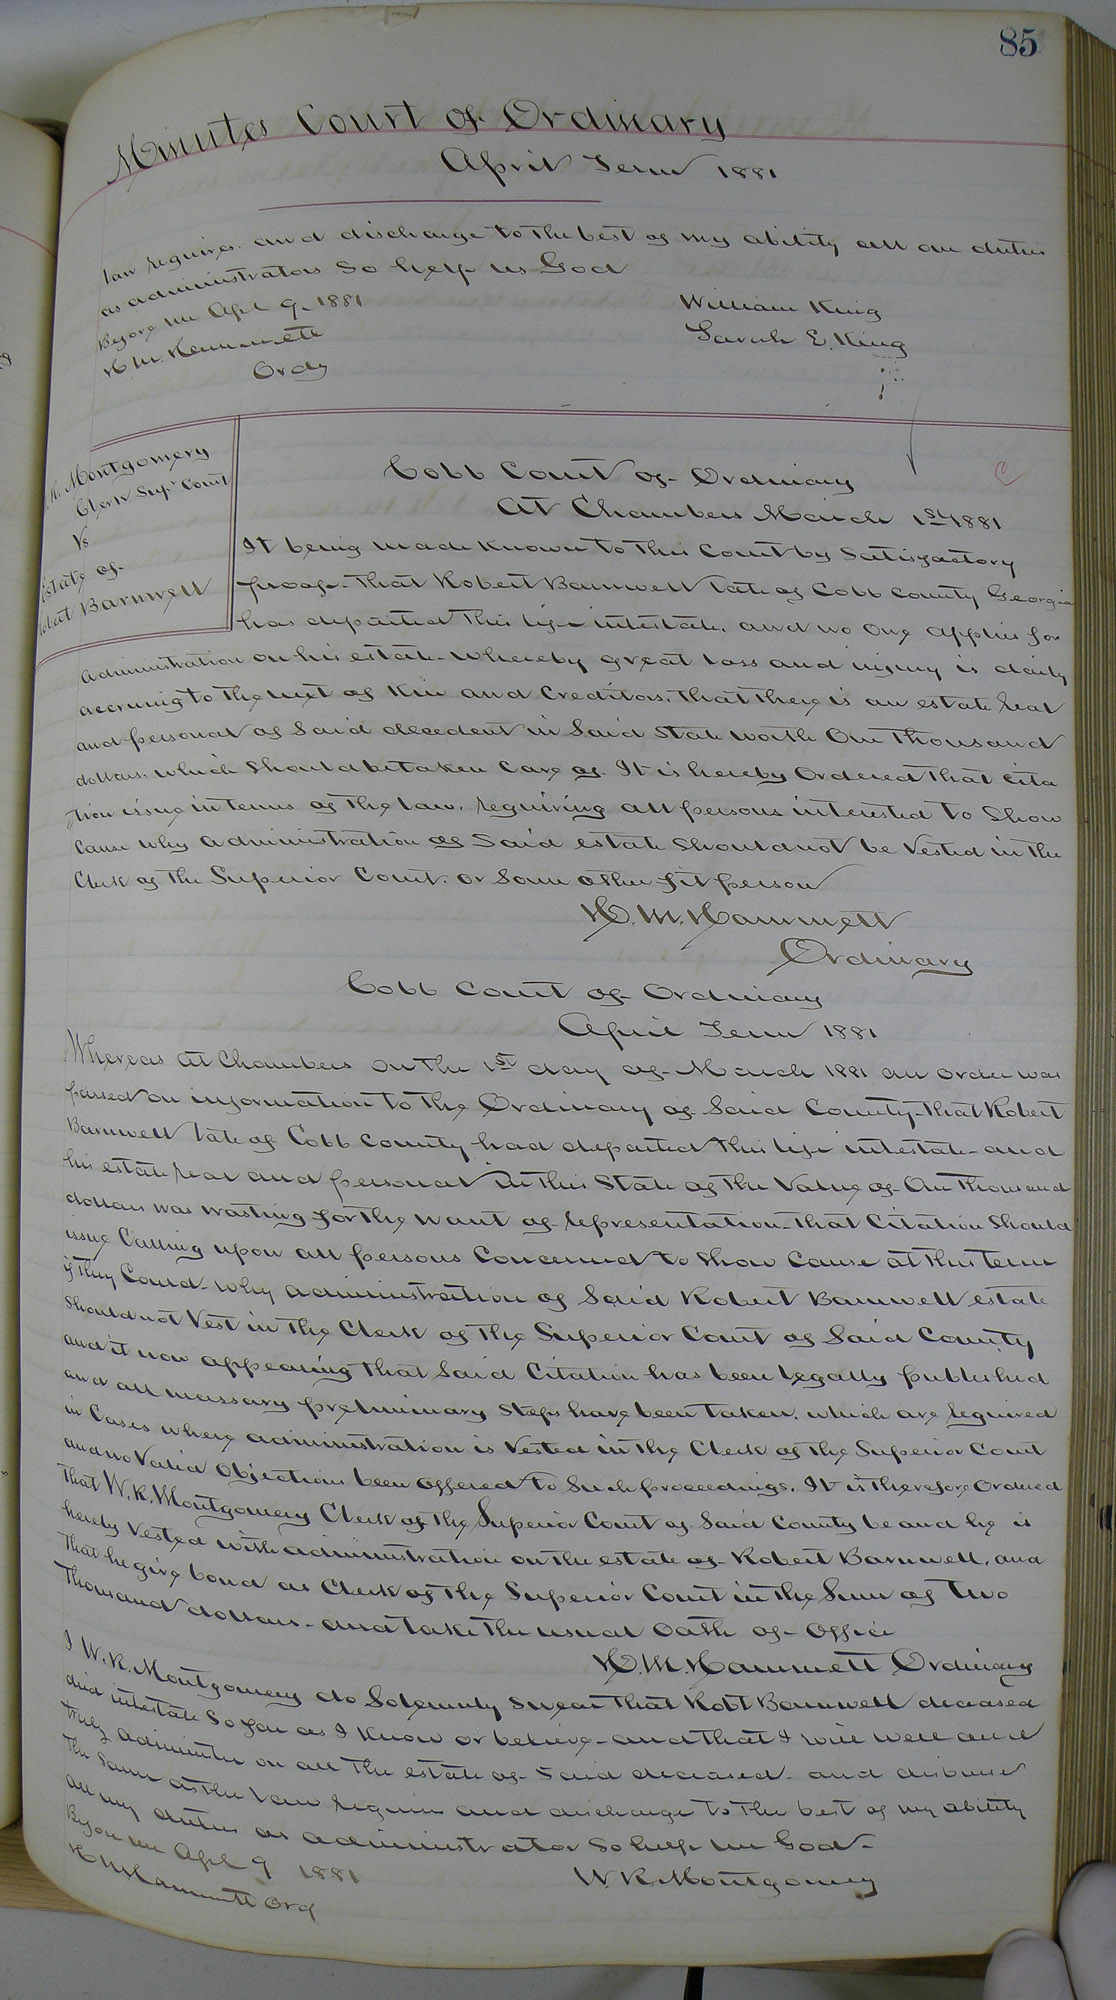 85
Minutes Court of Ordinary
April Term 1881
law requires. and discharge to the best of my ability all our duties
as administrators So help us God
Before me Apl 9. 1881
William King
H. M. Hammett
Sarah E. King
Ordy
W. R. Montgomery
Clerk Supr Court
Vs
Estate of
Robert Barnwell
Cobb Court of Ordinary
At Chambers March 1st 1881
It being made known to this Court by Satisfactory
proof. that Robert Barnwell late of Cobb County Georgia
has departed this life intestate. and no one applies for
administration on his estate. whereby great loss and injury is daily
accruing to the next of Kin and Creditors. that there is an estate real
and personal of Said decedent in Said State worth One Thousand
dollars. which Should be taken Care of. It is hereby Ordered that cita
tion issue in terms of the law. requiring all persons interested to Show
Cause why administration of Said estate should not be Vested in the
Clerk of the Superior Court. or Some other fit person
H. M. Hammett
Ordinary
Cobb Court of Ordinary
April Term 1881
Whereas at Chambers on the 1st day of March 1881 an order was
passed on information to the Ordinary of Said County that Robert
Barnwell late of Cobb County had departed this life intestate and
his estate real and personal in this State of the Value of One Thousand
dollars was wasting for the want of representation that Citation Should
issue Calling upon all persons Concerned to Show Cause at this term
if they Could why administration of Said Robert Barnwell estate
Should not Vest in the Clerk of the Superior Court of Said County
and it now appearing that Said Citation has been legally published
and all necessary preliminary Steps have been taken. which are required
in Cases where administration is Vested in the Clerk of the Superior Court
and no Valid Objection been Offered to Such proceedings. It is therefore Ordered
that W. R. Montgomery Clerk of the Superior Court of Said County be and he is
hereby Vested with administration on the estate of Robert Barnwell. and
that he give bond as Clerk of the Superior Court in the Sum of Two
Thousand dollars. and take the usual Oath of Office
H. M. Hammett Ordinary
I W. R. Montgomery do Solemnly Swear that Robt Barnwell deceased
died intestate So far as I know or believe and that I will well and
truly administer on all the estate of Said deceased. and disburse
the Same as the law requires and discharge to the best of my ability
all my duties as administrator So help me God.
Before me Apl 9 1881
W. R. Montgomery
H M Hammett Ord